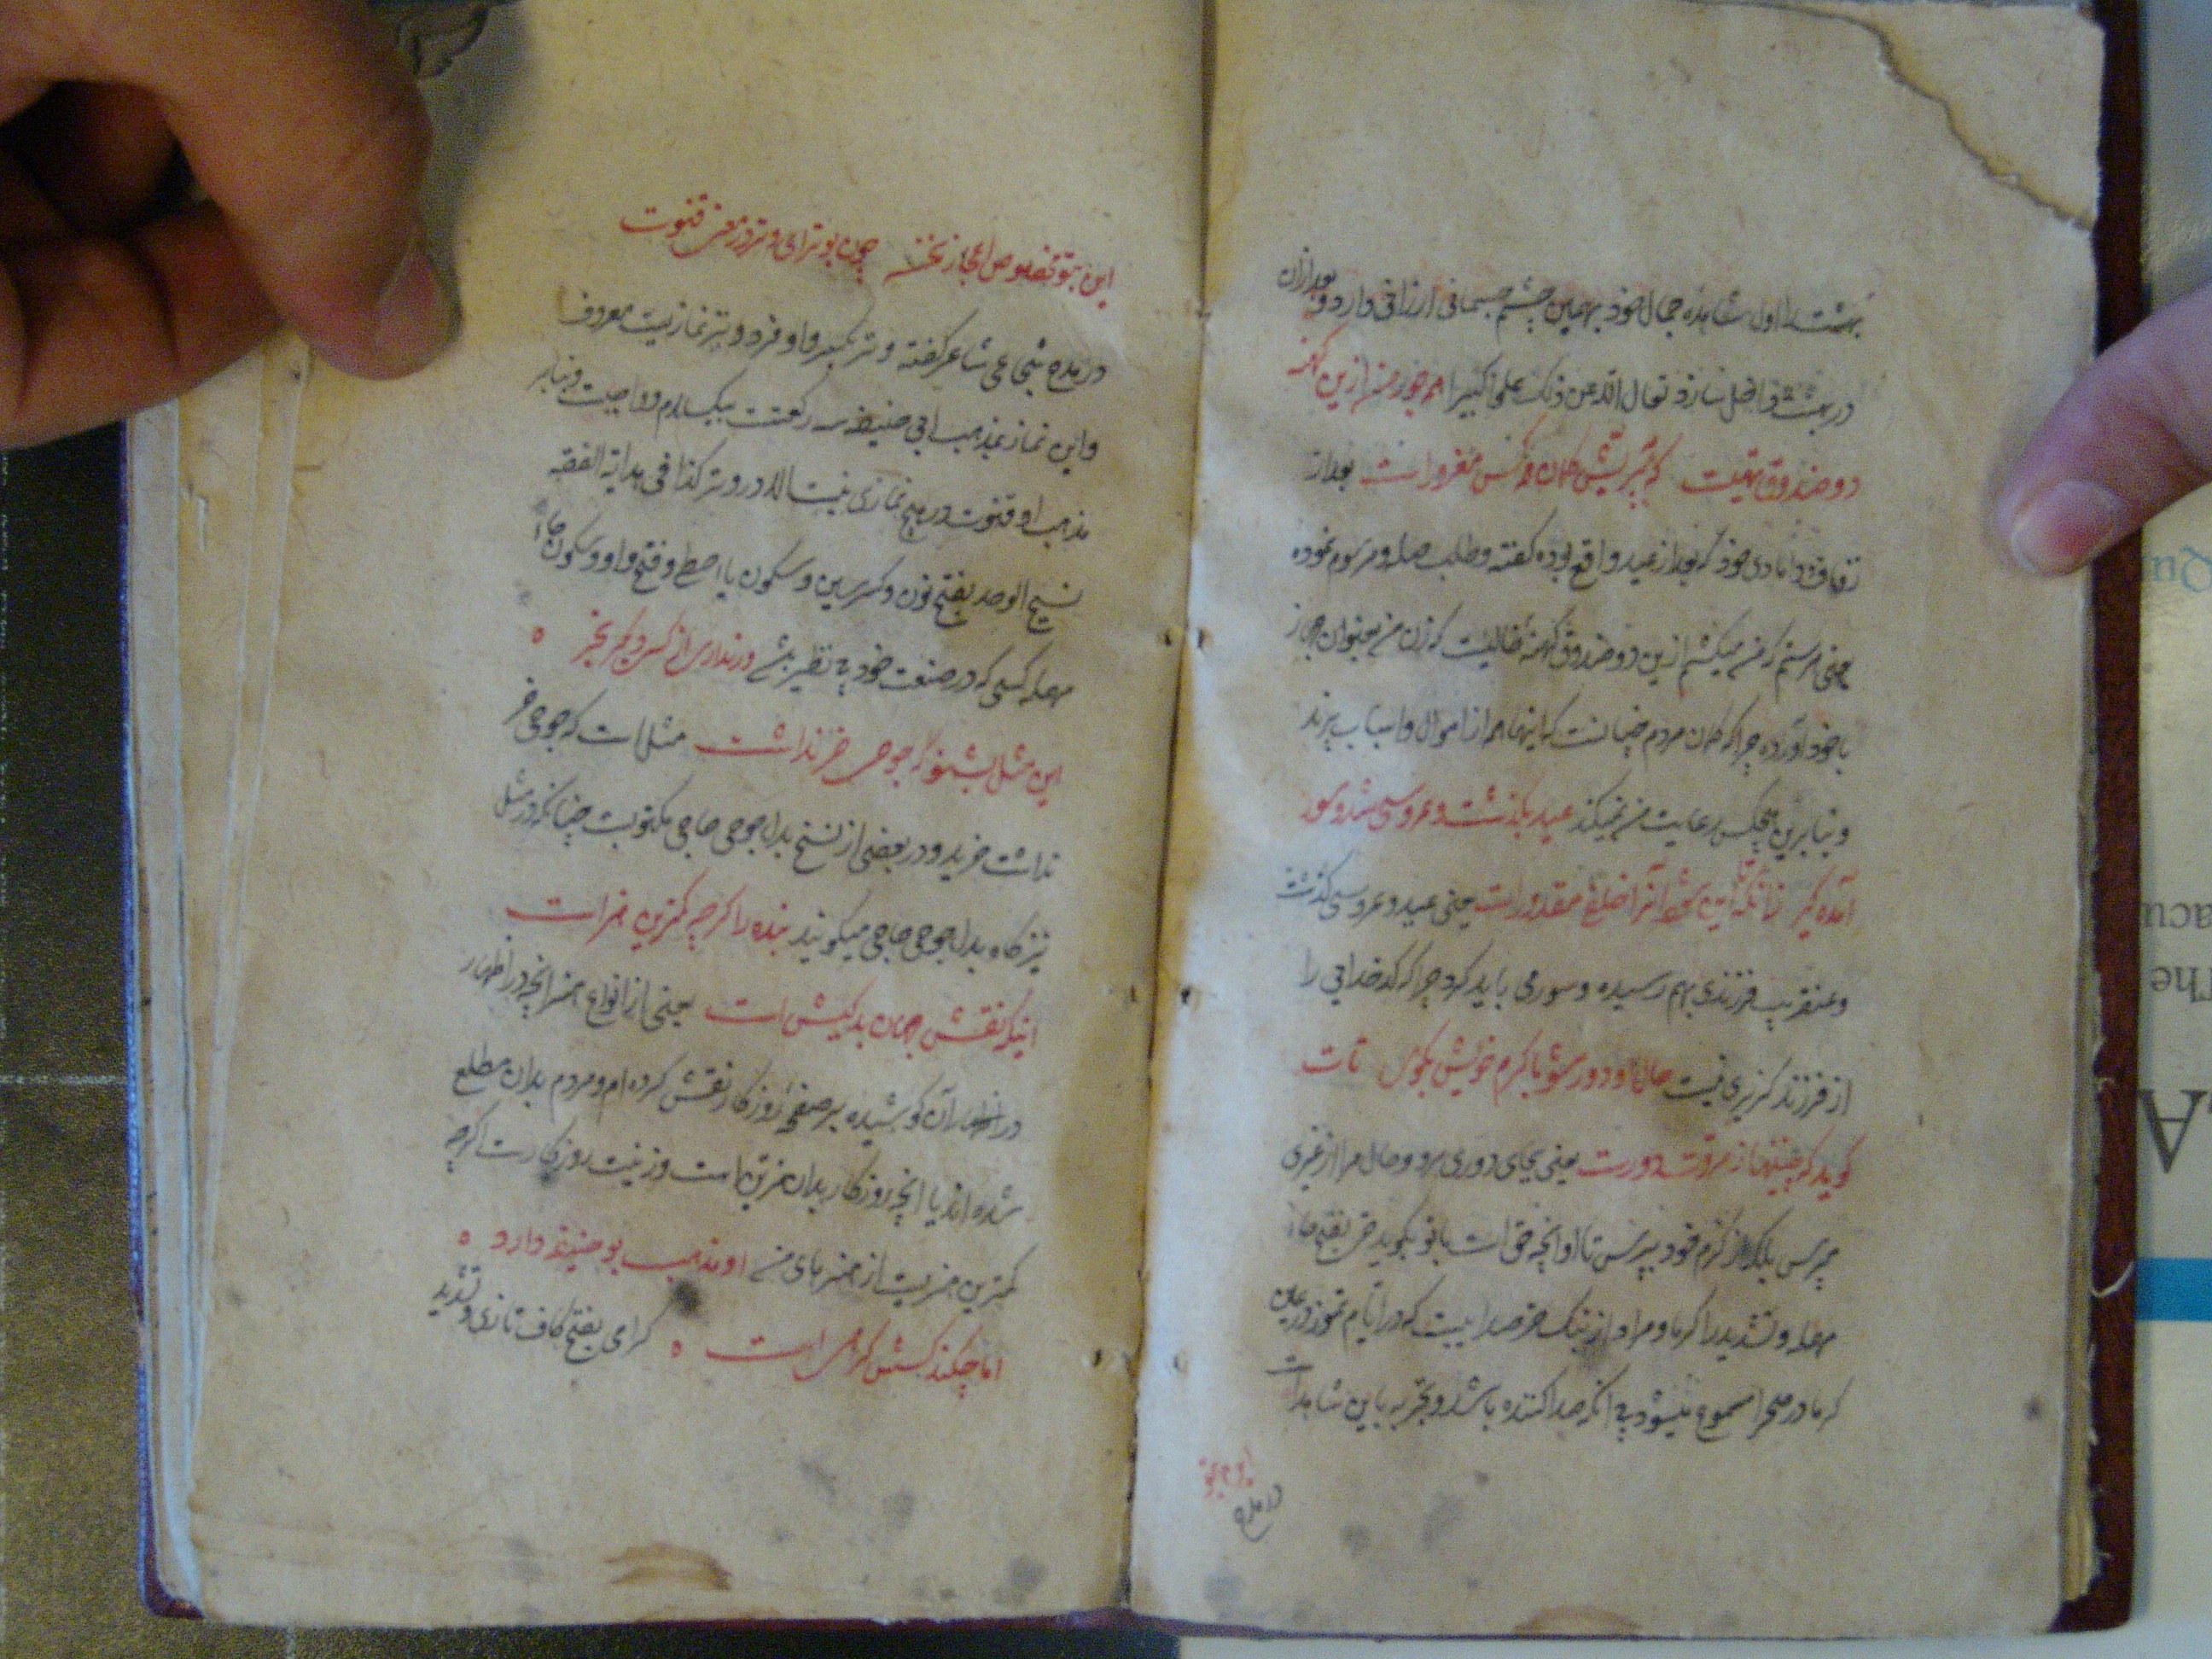 بهشت را اول مشاهده جمال خود بهمین چشم جسمانی ارزانی دارد و بعد ازان
در بهشت داخل سازد تعالی الله عن ذلک علوا کبیرا همه جور من ازین کهنه
دو صندوق تهیست که پریش کمان کس مغرور است بعد از
زفاف و دامادی خود که بعد از عید واقع بوده گفته و طلب صله و مرسوم نموده
یعنی هر ستم که من میکشم ازین دو صندوق کهنه خالیست که زن من بعنوان جهاز
با خود آورده چرا که کمان مردم چنانست که اینها هم از اموال و اسباب پرند
و بنابرین هیچکس رعایت من نمیکند عید بگذشت و عروسی شد و سور
آمده گیر زانکه این شو آنرا خلفی مقدور است یعنی عید و عروسی گذشت
و عنقریب فرزندی بهم رسیده و سوری باید کرد چرا که کدخدایی را
از فرزند گزیری نیست حال او دور مشو با کرم خویش بگوی تات
گوید که چنینها ز مروت دورست یعنی بجای دوری مرو و حال مرا از غیری
مپرس بلکه از کرم خود بپرس تا او آنچه حق است با تو بگوید حر بفتح حاء
مهمله و تشدید را گرما و مراد از بنک حر صداییست که در ایام تموز و عین
گرما در صحرا مسموع میشود بی آنکه صدا کننده باشد و تجربه باین شاهد است
در مدح
این بتو مخصوص اعجاز نخست چون بوتر ای وتر در معنی قنوت
در مدح شجاعی شاعر گفته و وتر بکسر واو فرد و وتر نمازیست معروف
و این نماز بمذهب ابی حنیفه سه رکعتست بیک سلام و واجبست و بنابر
مذهب او قنوت در هیچ نمازی نیست الا در وتر کذا فی هدایة الفقه
نسیج الوحد بفتح نون و کسر سین و سکون یا حطی و فتح واو و سکون حاء
مهمله کسی که در صنعت خود بی نظیر باشد ور نداری از کس دیگر بخر
این مثل بشنو که جوحی خر نداشت مثل است که جوحی خر
نداشت خرید و در بعضی از نسخ بدل جوحی حاجی مکتوبست چنانکه در مثل
نیز گاه بدل جوحی حاجی میگویند بنده را گرچه کمترین هنر است
اینکه نقش جهان بدکیش است یعنی از انواع هنر آنچه در اظهار
در اظهار آن کوشیده بر صفحه روزگار نقش کرده ام و مردم بدان مطلع
شده اند یا آنچه روزگار بدان مزین است و زینت روزگارست اگرچه
کمترین هنریست از هنرهای من او مذهب بو حنیفه دارد
اما چکند کسش کرامی است کرامی بفتح کاف تازی و تشدید